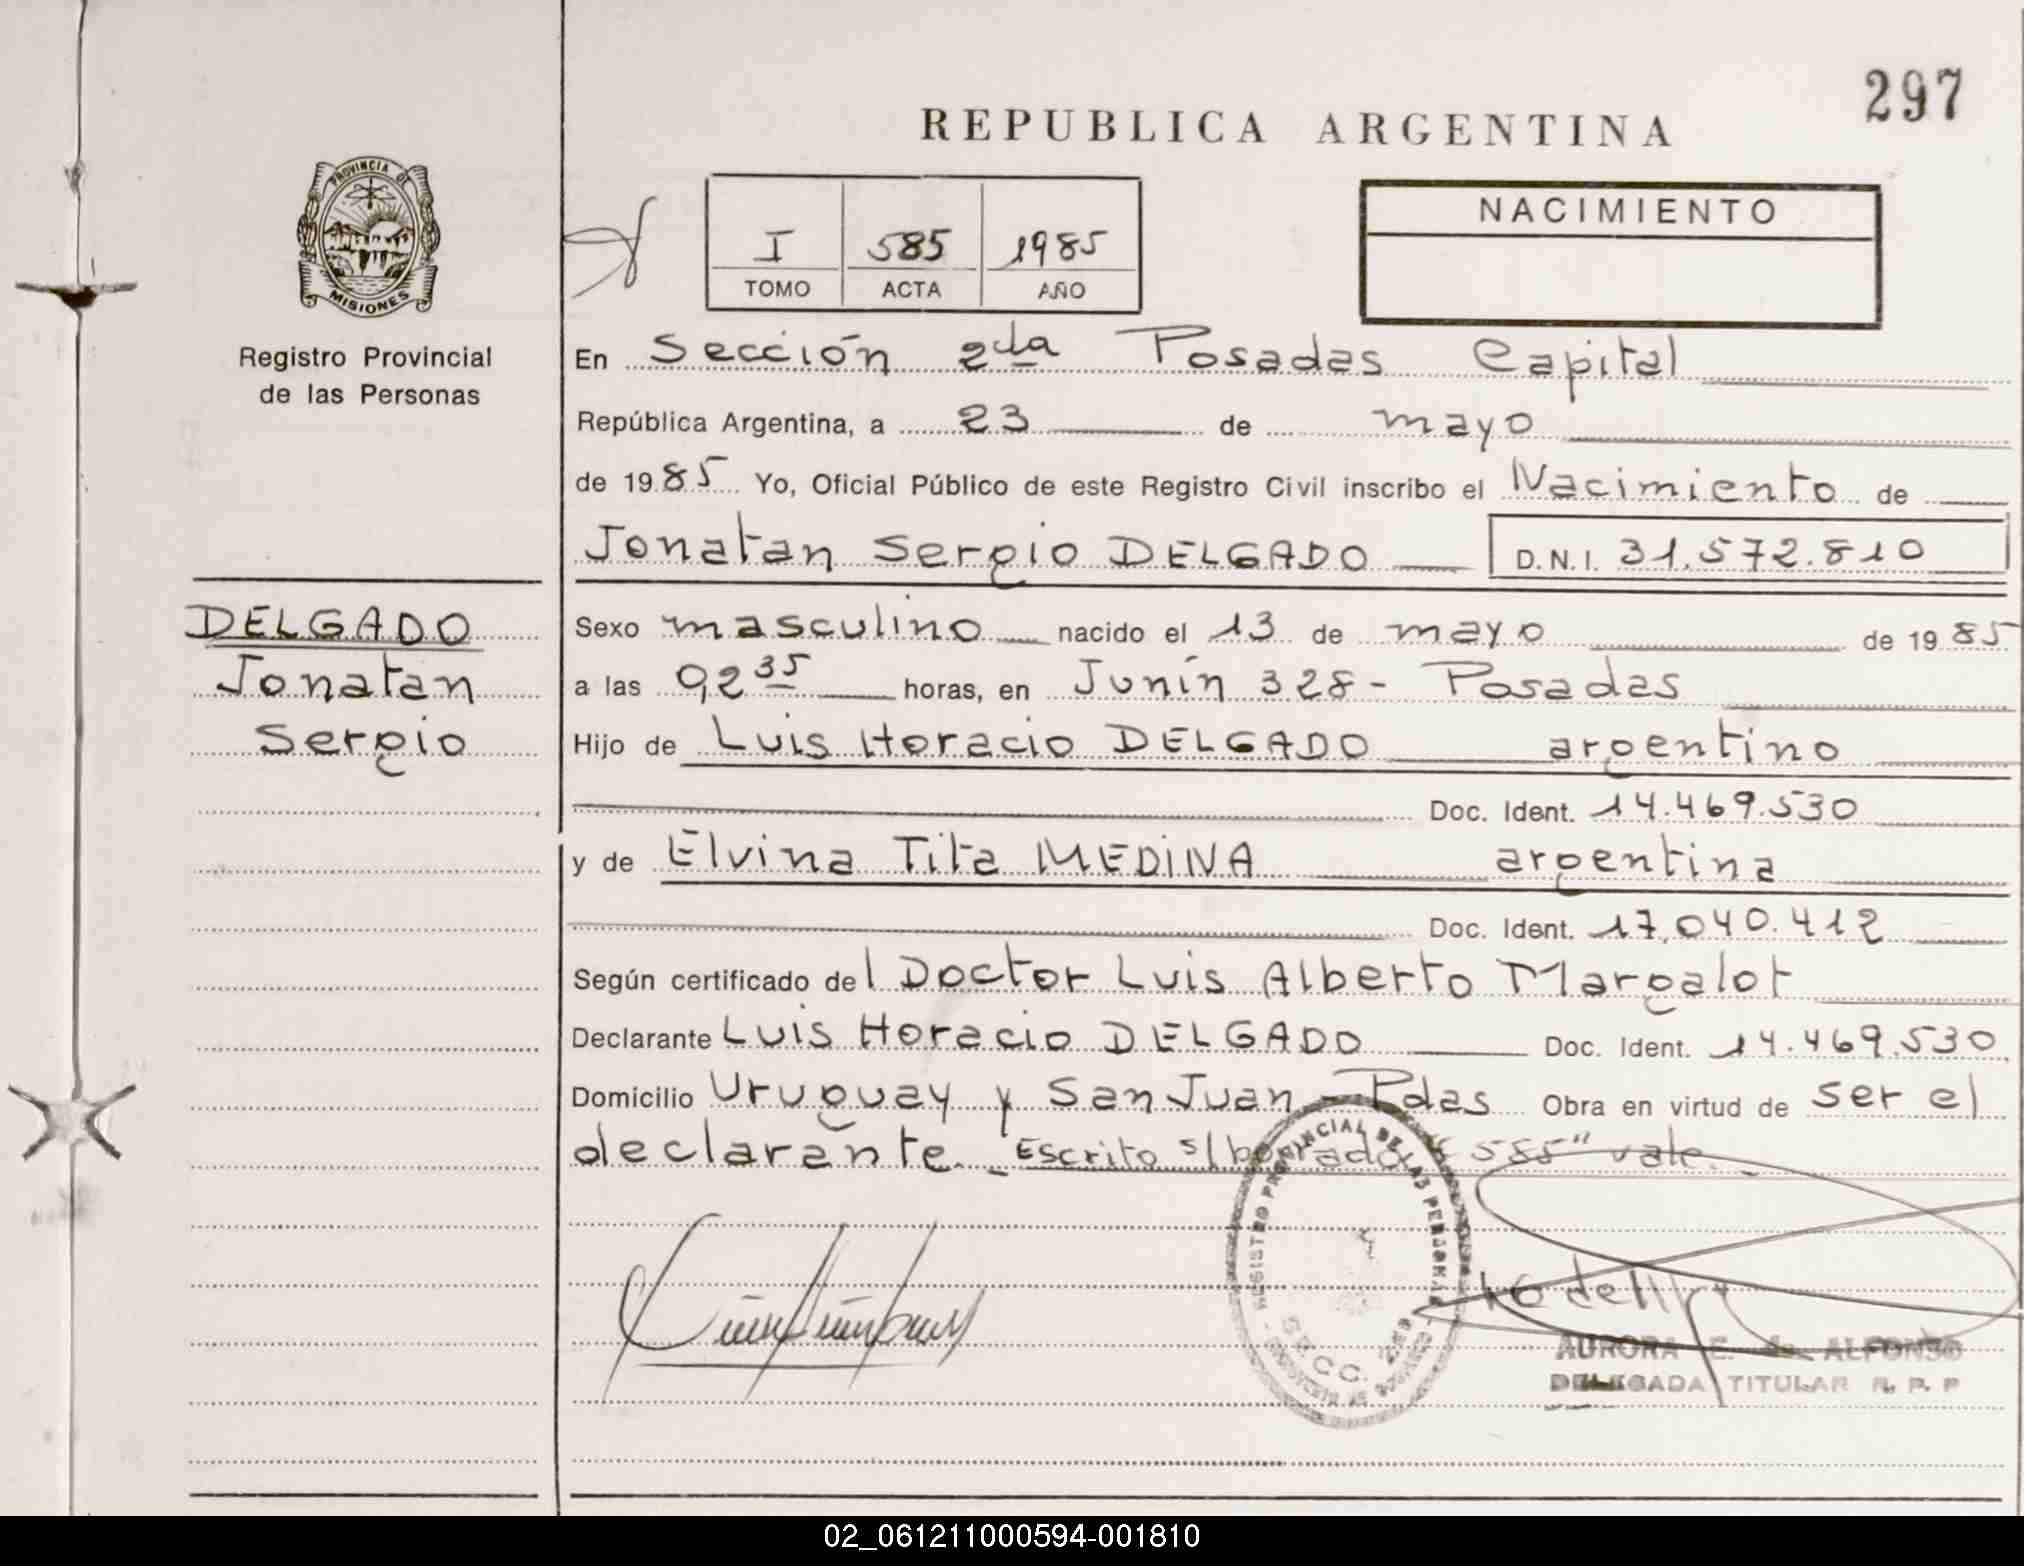 297
REPUBLICA ARGENTINA
PROVINCIA DE
MISIONES
Registro Provincial
de las Personas
I 585 1985
TOMO ACTA AÑO
NACIMIENTO
En Sección 2da Posadas Capital
República Argentina, a 23 de mayo
de 1985 Yo, Oficial Público de este Registro Civil inscribo el Nacimiento de
Jonatan Sergio DELGADO D.N.I. 31.572.810
DELGADO
Jonatan
Sergio
Sexo masculino nacido el 13 de mayo de 1985
a las 9,2 35 horas, en Junín 328- Posadas
Hijo de Luis Horacio DELGADO argentino
Doc. Ident. 14.469.530
y de Elvina Tita MEDINA argentina
Doc. Ident. 17.040.412
Según certificado del Doctor Luis Alberto Margalot
Declarante Luis Horacio DELGADO Doc. Ident. 14.469.530
Domicilio Uruguay y San Juan - Pdas Obra en virtud de ser el
declarante. - Escrito s/borrado "585" vale. -
REGISTRO PROVINCIAL DE LAS PERSONAS
SECC. 2da
AURORA E. de ALFONSO
DELEGADA TITULAR R. P. P
02_061211000594-001810